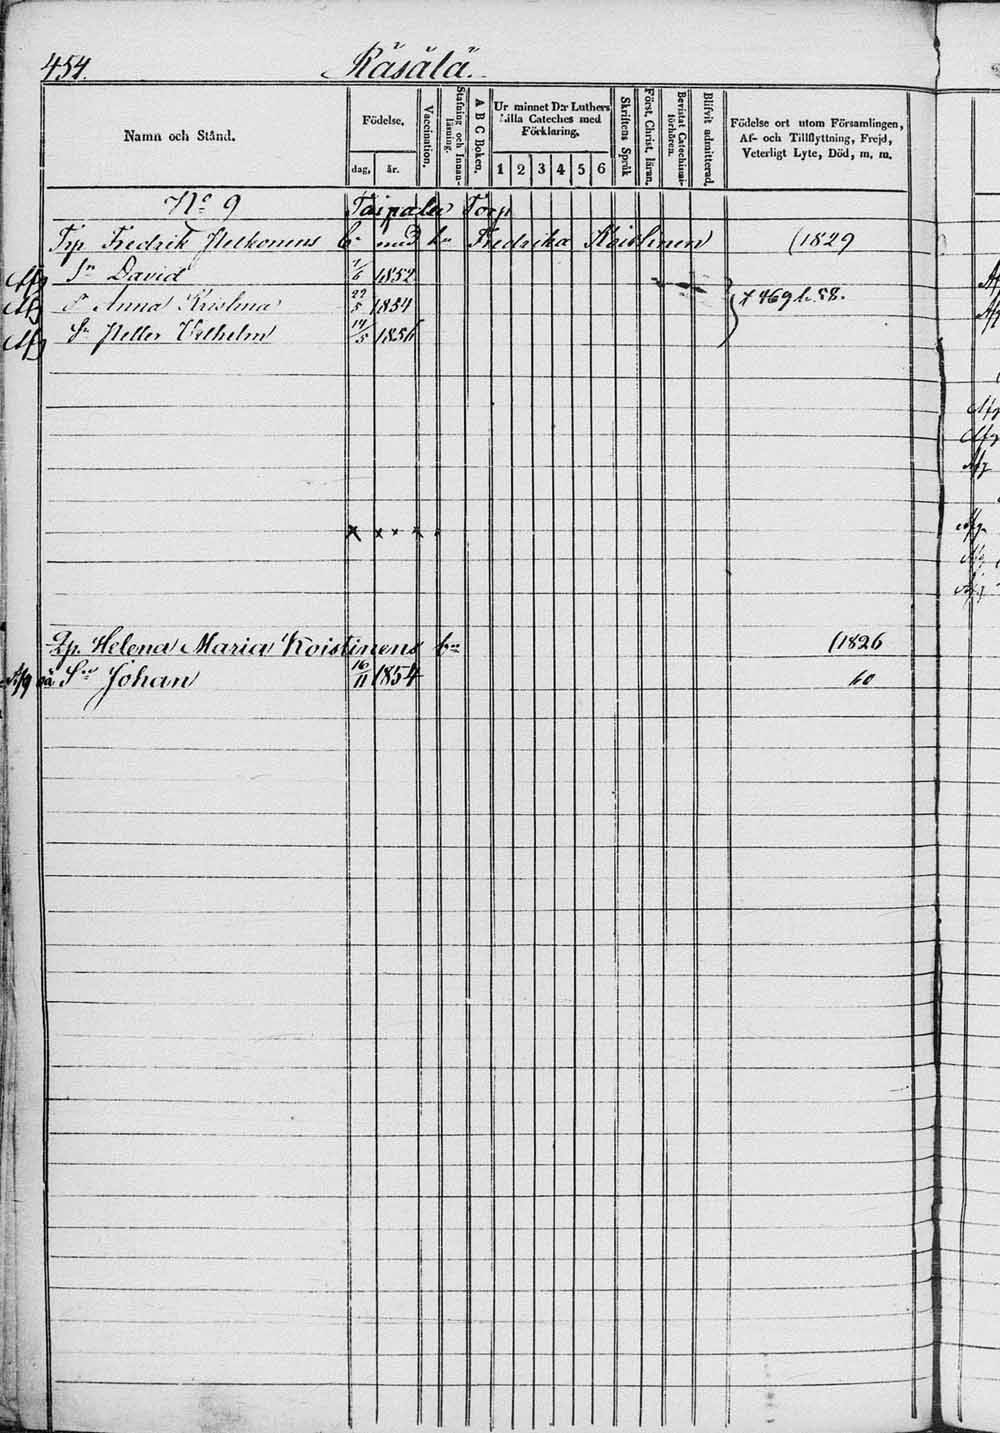 454. Räsälä.
Namn och Stånd.
Födelse.
dag,
år.
Vaccination.
Stafning och Innan-
läsning.
A B C Boken.
Ur minnet D:r Luthers
Lilla Cateches med
Förklaring.
1 2 3 4 5 6
Skriftens Språk
Först. Christ. läran.
Bevistat Catechismi-
förhören.
Blifvit admitterad.
Födelse ort utom Församlingen,
Af- och Tillflyttning, Frejd,
Veterligt Lyte, Död, m, m.
No 9 Taipale Torp
Trp Fredrik med hu Fredrika Koistinen (1829
Afg Sn David 1852
Afg Anna Kristina 22/5 1854
Afg Sn Petter Vilhelm 14/5 1856
469 58.
x x x x
Helena Maria Koistinens bn (1826
Afg Sn Johan 16/11 1854 60